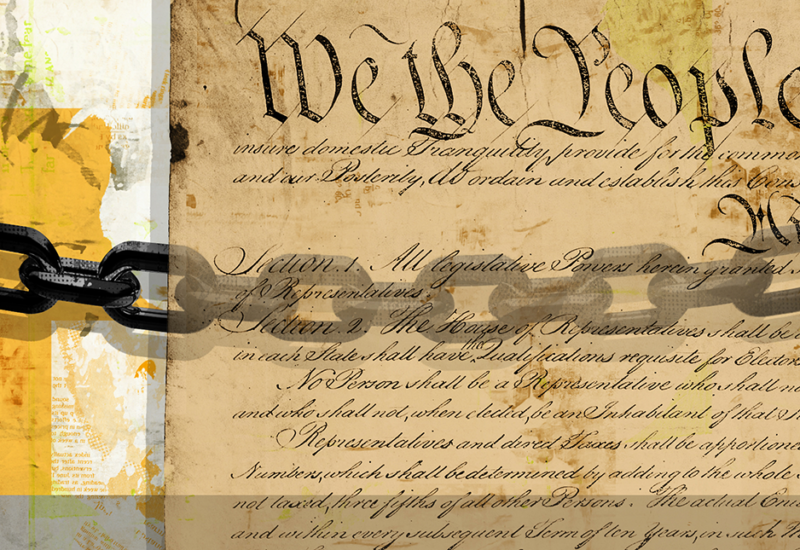 We the People
insure domestic Tranquility, provide for the common
and our Posterity, do ordain and establish this
Section. 1. All legislative Powers herein granted
of Representatives.
Section. 2. The House of Representatives shall be
in each State shall have the Qualifications requisite for
No Person shall be a Representative who shall
and who shall not, when elected, be an Inhabitant of that
Representatives and direct Taxes shall be
Numbers, which shall be determined by adding to the whole
not taxed, three fifths of all other Persons. The actual
and within every subsequent Term of ten Years, in such